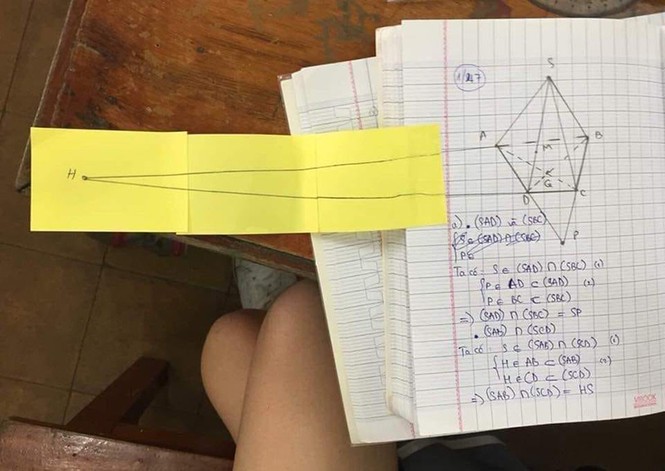 1/247
S
A
B
M
K
G
D
C
P
H
a) • (SAD) và (SBC)
S ∈ (SAD) ∩ (SBC)
P ∈
Ta có: S ∈ (SAD) ∩ (SBC) (1)
{ P ∈ AD ⊂ (SAD) (2)
P ∈ BC ⊂ (SBC)
=) (SAD) ∩ (SBC) = SP
• (SAB) ∩ (SCD)
Ta có: S ∈ (SAB) ∩ (SCD) (1)
{ H ∈ AB ⊂ (SAB) (2)
H ∈ CD ⊂ (SCD)
=) (SAB) ∩ (SCD) = HS